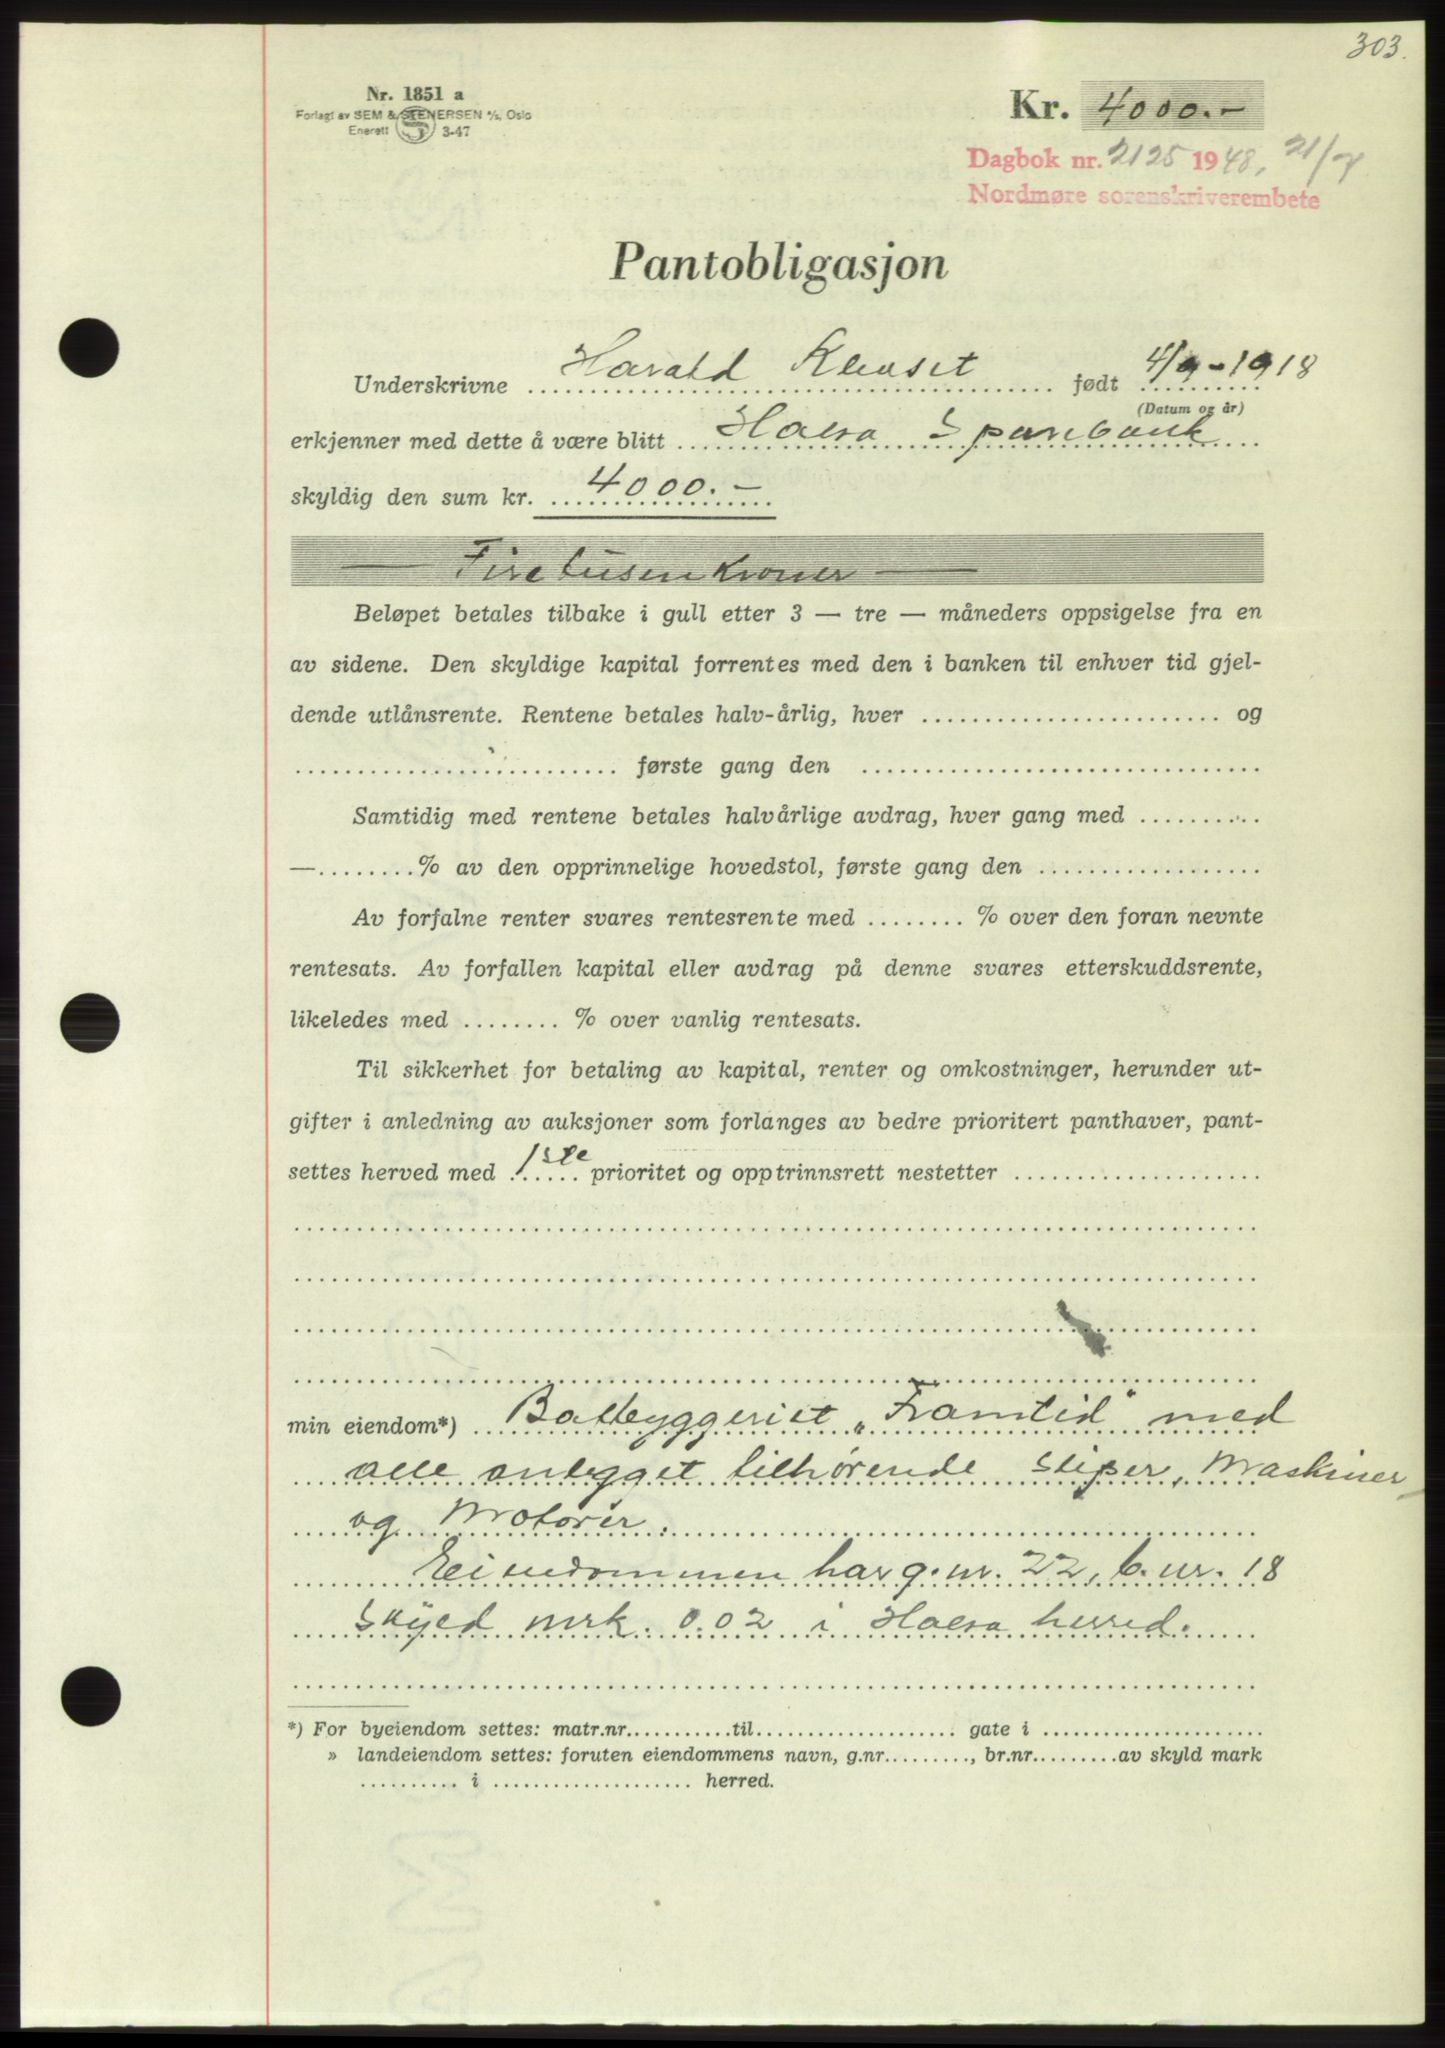 303.
Nr. 1851 a
Forlagt av SEM & STENERSEN A/S, Oslo
Enerett 3-47
Kr. 4000.-
Dagbok nr. 2125 1948, 21/7
Nordmøre sorenskriverembete
Pantobligasjon
Underskrivne Harald Kleuset født 4/9-1918
(Datum og år)
erkjenner med dette å være blitt Halsa Sparebank
skyldig den sum kr. 4000.-
— Firetusenkroner —
Beløpet betales tilbake i gull etter 3 — tre — måneders oppsigelse fra en
av sidene. Den skyldige kapital forrentes med den i banken til enhver tid gjel-
dende utlånsrente. Rentene betales halv-årlig, hver ........ og
........ første gang den ........
Samtidig med rentene betales halvårlige avdrag, hver gang med ........
—........% av den opprinnelige hovedstol, første gang den ........
Av forfalne renter svares rentesrente med ........ % over den foran nevnte
rentesats. Av forfallen kapital eller avdrag på denne svares etterskuddsrente,
likeledes med ........ % over vanlig rentesats.
Til sikkerhet for betaling av kapital, renter og omkostninger, herunder ut-
gifter i anledning av auksjoner som forlanges av bedre prioritert panthaver, pant-
settes herved med 1ste prioritet og opptrinnsrett nestetter ........
min eiendom*) Båtbyggeriet „Framtid" med
alle anlegget tilhørende sliper, Maskiner
og Motorer.
Eiendommen har g.nr. 22, b.nr. 18
Skyld mrk. 0.02 i Halsa herred.
*) For byeiendom settes: matr.nr...........til.................... gate i ......................
» landeiendom settes: foruten eiendommens navn, g.nr........., br.nr.........av skyld mark
.......... i .................... herred.